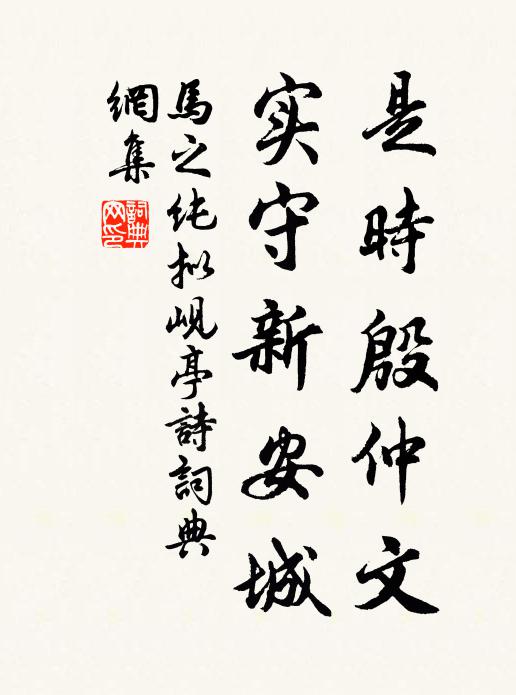 是時殷仲文
实守新安城
馬之純拟峴亭詩詞典
網集
詞典
网印